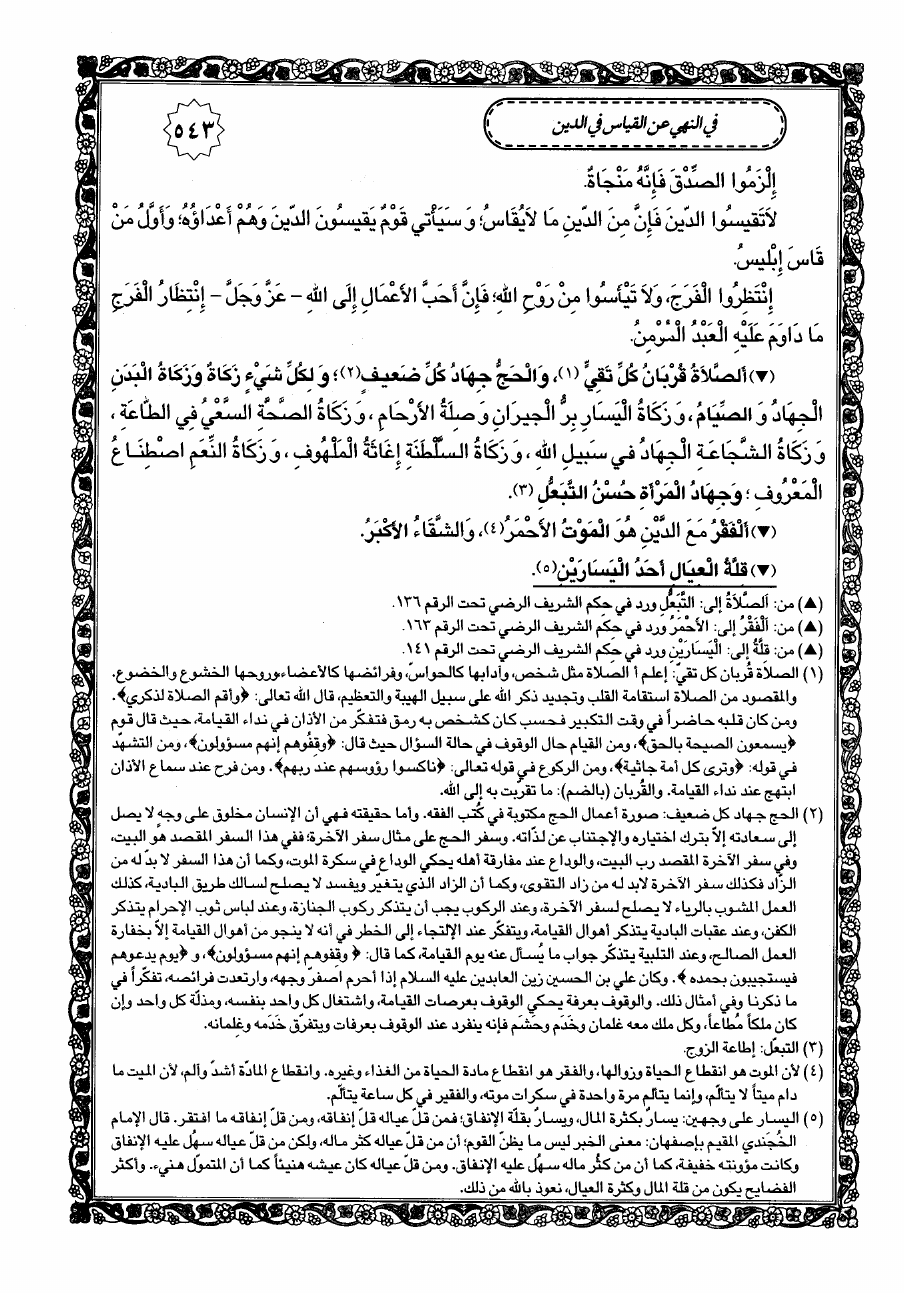 في النهي عن القياس في الدين
٥٤٣
إِلْزَمُوا الصِّدْقَ فَإِنَّهُ مَنْجَاةٌ.
لَاتَقِيسُوا الدِّينَ فَإِنَّ مِنَ الدِّينِ مَا لَايُقَاسُ؛ وَ سَيَأْتي قَوْمٌ يَقيسُونَ الدِّينَ وَهُمْ أَعْدَاؤُهُ؛ وَأَوَّلُ مَنْ
قَاسَ إِبْليسُ.
إِنْتَظِرُوا الْفَرَجَ، وَلَا تَيْأَسُوا مِنْ رَوْحِ اللهِ؛ فَإِنَّ أَحَبَّ الأَعْمَالِ إِلَى اللهِ – عَزَّ وَجَلَّ – إِنْتِظَارُ الْفَرَجِ
مَا دَاوَمَ عَلَيْهِ الْعَبْدُ الْمُؤْمِنُ.
(▼) أَلصَّلَاةُ قُرْبَانُ كُلِّ تَقِيٍّ (١)، وَالْحَجُّ جِهَادُ كُلِّ ضَعيفٍ (٢)؛ وَ لِكُلِّ شَيْءٍ زَكَاةٌ وَزَكَاةُ الْبَدَنِ
الْجِهَادُ وَ الصِّيَامُ، وَ زَكَاةُ الْيَسَارِ بِرُّ الْجيرَانِ وَصِلَةُ الأَرْحَامِ، وَ زَكَاةُ الصِّحَّةِ السَّعْيُ فِي الطَّاعَةِ،
وَ زَكَاةُ الشَّجَاعَةِ الْجِهَادُ في سَبيلِ اللهِ، وَ زَكَاةُ السَّلْطَنَةِ إِغَاثَةُ الْمَلْهُوفِ، وَ زَكَاةُ النِّعَمِ اصْطِنَاعُ
الْمَعْرُوفِ؛ وَجِهَادُ الْمَرْأَةِ حُسْنُ التَّبَعُّلِ (٣).
(▼) أَلْفَقْرُ مَعَ الدَّيْنِ هُوَ الْمَوْتُ الأَحْمَرُ (٤)، وَالشَّقَاءُ الأَكْبَرُ.
(▼) قِلَّةُ الْعِيَالِ أَحَدُ الْيَسَارَيْنِ (٥).
(▲) من: اَلصَّلَاةُ إلى: التَّبَعُّلِ ورد في حِكم الشريف الرضي تحت الرقم ١٣٦.
(▲) من: اَلْفَقْرُ إلى: الأَحْمَرُ ورد في حِكَم الشريف الرضي تحت الرقم ١٦٣.
(▲) من: قلَّةُ إلى: الْيَسَارَيْنِ ورد في حِكَم الشريف الرضي تحت الرقم ١٤١.
(١) الصلاة قُربان كل تقيّ: إعلم أ الصلاة مثل شخص، وآدابها كالحواسّ، وفرائضها كالأعضاء، وروحها الخشوع والخضوع.
والمقصود من الصلاة استقامة القلب وتجديد ذكر الله على سبيل الهيبة والتعظيم، قال الله تعالى: ﴿وأقم الصلاة لذكري﴾.
ومن كان قلبه حاضراً في وقت التكبير فحسب كان كشخص به رمق فتفكّر من الأذان في نداء القيامة، حيث قال قوم
﴿يسمعون الصيحة بالحق﴾، ومن القيام حال الوقوف في حالة السؤال حيث قال: ﴿وقِفُوهم إنهم مسؤولون﴾، ومن التشهد
في قوله: ﴿وترى كل أمة جاثية﴾، ومن الركوع في قوله تعالى: ﴿ناكسوا رؤوسهم عند ربهم﴾. ومن فرح عند سماع الأذان
ابتهج عند نداء القيامة. والقُربان (بالضم): ما تقرّبت به إلى الله.
(٢) الحج جهاد كل ضعيف: صورة أعمال الحج مكتوبة في كُتب الفقه. وأما حقيقته فهي أن الإنسان مخلوق على وجهٍ لا يصل
إلى سعادته إلاّ بترك اختياره والإجتناب عن لذّاته. وسفر الحج على مثال سفر الآخرة؛ ففي هذا السفر المقصد هو البيت،
وفي سفر الآخرة المقصد رب البيت، والوداع عند مفارقة أهله يحكي الوداع في سكرة الموت، وكما أن هذا السفر لا بدّ له من
الزاد فكذلك سفر الآخرة لابد له من زاد التقوى، وكما أن الزاد الذي يتغيّر ويفسد لا يصلح لسالك طريق البادية، كذلك
العمل المشوب بالرياء لا يصلح لسفر الآخرة، وعند الركوب يجب أن يتذكر ركوب الجنازة، وعند لباس ثوب الإحرام يتذكر
الكفن، وعند عقبات البادية يتذكر أهوال القيامة، ويتفكّر عند الإلتجاء إلى الخطر في أنه لا ينجو من أهوال القيامة إلاّ بخفارة
العمل الصالح، وعند التلبية يتذكّر جواب ما يُسأل عنه يوم القيامة، كما قال: ﴿ وقفوهم إنهم مسؤولون﴾، و ﴿يوم يدعوهم
فيستجيبون بحمده ﴾. وكان علي بن الحسين زين العابدين عليه السلام إذا أحرم اصفرّ وجهه، وارتعدت فرائصه، تفكّراً في
ما ذكرنا وفي أمثال ذلك. والوقوف بعرفة يحكي الوقوف بعرصات القيامة، واشتغال كل واحد بنفسه، ومذلّة كل واحد وإن
كان ملكاً مُطاعاً، وكل ملك معه غلمان وخَدَم وحَشَم فإنه ينفرد عند الوقوف بعرفات ويتفرّق خَدَمه وغِلمانه.
(٣) التبعّل: إطاعة الزوج.
(٤) لأن الموت هو انقطاع الحياة وزوالها، والفقر هو انقطاع مادة الحياة من الغذاء وغيره. وانقطاع المادّة أشدّ وألم، لأن الميت ما
دام ميتاً لا يتألّم، وإنما يتألم مرة واحدة في سكرات موته، والفقير في كل ساعة يتألّم.
(٥) اليسار على وجهين: يسارٌ بكثرة المال، ويسارٌ بقلّة الإنفاق؛ فمن قلّ عياله قلّ إنفاقه، ومن قلّ إنفاقه ما افتقر. قال الإمام
الخُجَندي المقيم بإصفهان: معنى الخبر ليس ما يظنّ القوم؛ أن من قلّ عياله كثر ماله، ولكن من قلّ عياله سهُل عليه الإنفاق
وكانت مؤونته خفيفة، كما أن من كثُر ماله سهُل عليه الإنفاق. ومن قلّ عياله كان عيشه هنيئاً كما أن المتموّل هنيء. وأكثر
الفضايح يكون من قلة المال وكثرة العيال، نعوذ بالله من ذلك.